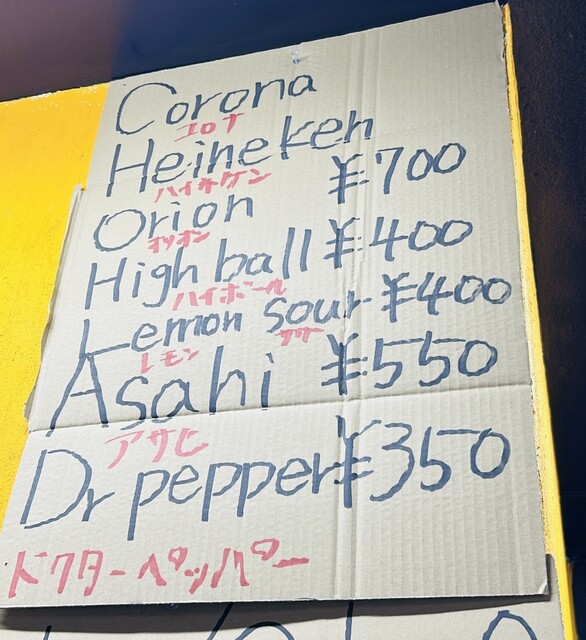 Corona
コロナ
Heineken
ハイネケン
Orion ¥700
オリオン
High ball ¥400
ハイボール
Lemon sour ¥400
レモン サワー
Asahi ¥550
アサヒ
Dr pepper ¥350
ドクターペッパー